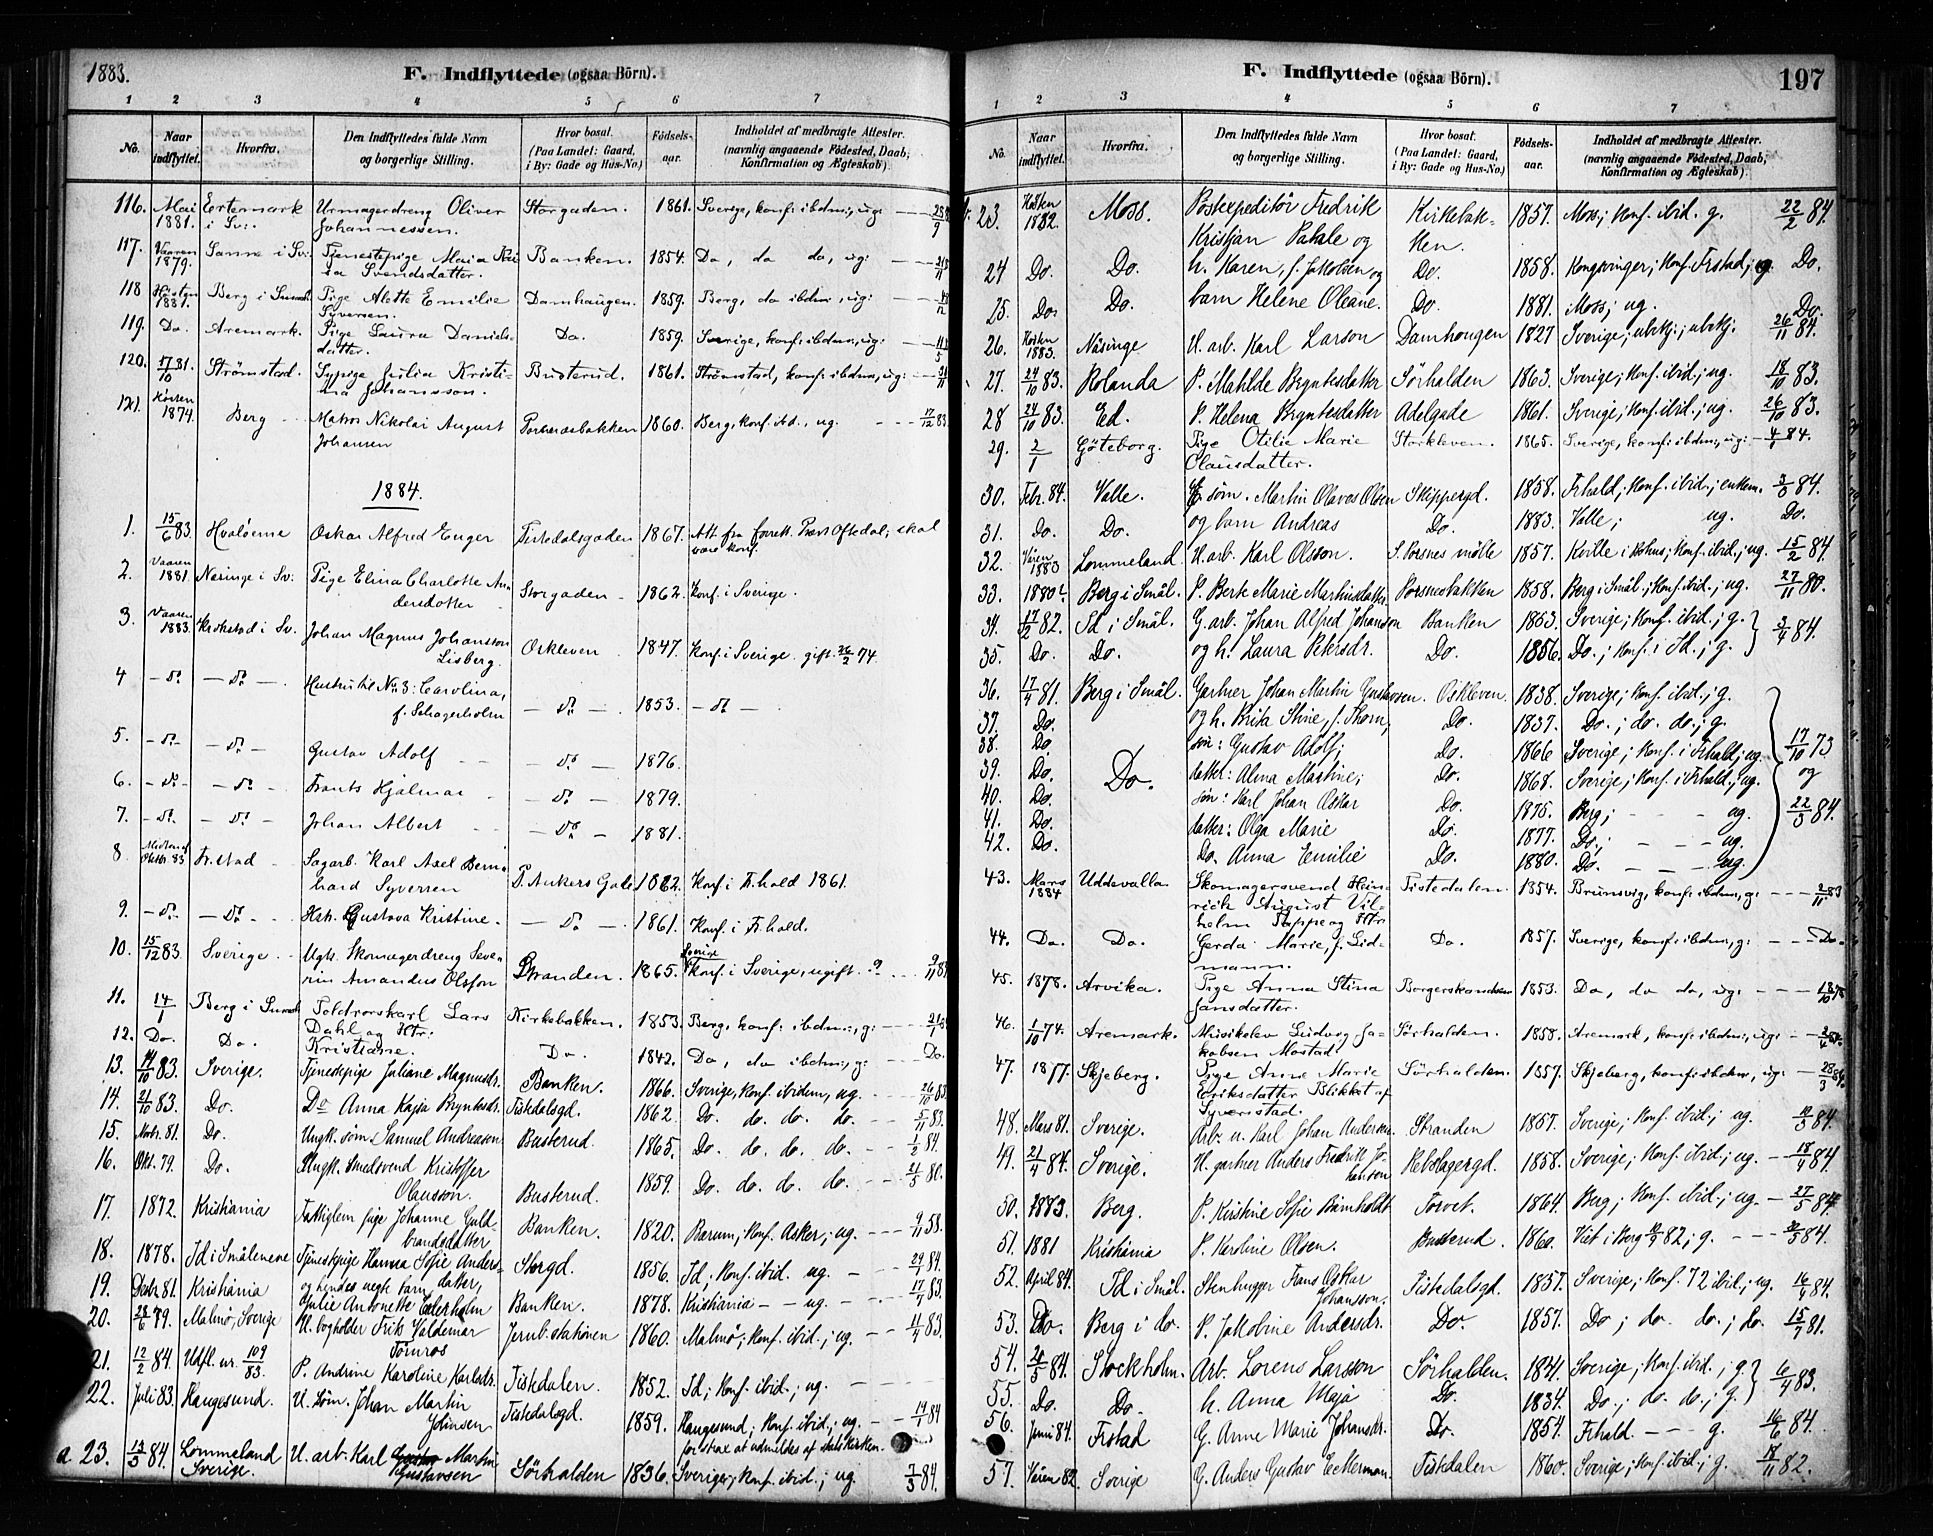 1883.
F. Indflyttede (ogsaa Börn).
1 2 3 4 5 6 7
No. Naar indflyttet. Hvorfra. Den Indflyttedes fulde Navn og borgerlige Stilling. Hvor bosat. (Paa Landet: Gaard, i By: Gade og Hus-No.) Födsels-aar. Indholdet af medbragte Attester. (navnlig angaaende Födested, Daab, Konfirmation og Ægteskab).
116. Mai 1881. Ertemark i Sv. Urmagerdreng Oliver Johannessen. Storgaden. 1861. Sverige, konf: ibdm:, ug:
117. Vaaren 1879. Sanne i Sv: Tjenestepige Maia Svendsdatter. Banken. 1854. Do, do do, ug:
118 Høsten 1881. Berg i Smaal. Pige Alette Emilie Syversen. Damhaugen. 1859. Berg, do ibdm:, ug:
119. Do. Aremark. Pige Laura Daniels-datter. Do. 1859. Sverige, konf: ibdm:, ug:
120. 17/10 81. Strömstad. Sypige Julia Kristi-na Johansson. Busterud. 1861. Strömstad, konf: ibdm:, ug:
121. Høsten 1874. Berg Matros Nikolai August Johansen Porsnesbakken 1860. Berg, konf. ibd., ug. 17/12 83
1884.
1. 15/6 83. Hvaløerne Oskar Alfred Enger Tistedalsgaden 1867. Att fra forrett. Præst Oftedal; skal være konf.
2. Vaaren 1881. Næsinge i Sv. Pige Elina Charlotte An-dersdotter Storgaden 1862. Konf. i Sverige.
3. Vaaren 1883. Krokstad i Sv. Johan Magnus Johansson Lisberg. Oskleven 1847. Konf. i Sverige. gift 26/2 74.
4 do do Hustru til No 3: Carolina, f. Schagerholm do 1853. do
5. do do Gustav Adolf do 1876.
6. do do Frants Hjalmar do 1879.
7. do do Johan Albert do 1881.
8 Midten af Oktbr. 83 Fr.stad Sagarb. Karl Axel Bern-hard Syversen P. Ankers Gade 1862. Konf. i Fr.hald 1861.
9. do do Hstr. Gustava Kristine. do 1861. Konf. i Fr.hald.
10. 15/12 83. Sverige Ugt. Skomagerdreng Seve-rin Amandus Olsson Stranden. 1865. Konf. i Sverige, ugift. 9/11 8
11. 14/1 Berg i Smaal. Toldrorskarl Lars Dahl og Hstr. Kirkebakken. 1853. Berg, konf: ibdm:, g:
12. Do. Do. Kristiane. Do. 1842. Do, do ibdm:, g: Do.
13. 14/10 83. Sverige. Tjenestepige Juliane Magnusdr. Banken. 1866. Sverige, konf. ibidem, ug. 26/10 83
14. 21/10 83. Do. Do Anna Kajsa Bryntesdr. Tistedalsgd. 1862. Do. do. do. do. 5/11 83.
15. Novbr. 81. Do. Ungk. søm. Samuel Andreasen Busterud. 1865. Do. do. do. do. 1/2 84.
16. Okt. 79. Do. Ungk. Smedsvend Kristoffer Olausson. Busterud. 1859. Do. do. do. do. 21/5 80.
17. 1872. Kristiania Fattiglem pige Johanne Guld-brandsdatter Banken. 1820. Bærum; Konf. Asker; ug. 9/11 58.
18. 1878. Id i Smålenene Tjenestepige Hanna Sofie Anders-datter, Storgd. 1856. Id; Konf. ibid. ug. 29/4 84.
19. Decbr 81. Kristiania og hendes uegte barn Julie Antonette Ederholm Banken. 1878. Kristiania – – ug. 17/4 83.
20. 28/6 79. Malmø, Sverige U. bogholder Frits Valdemar Törnros Jernb. stationen 1860. Malmø; Konf. ibid.; ug. 11/4 83.
21. 12/2 84. Udfl. nr. 109/83. P. Andrine Karoline Karlsdr. Tistedalen. 1852. Id; Konf. ibid.; ug.
22. Juli 83. Haugesund. U. Søm. Johan Martin Johnsen Tistedalsgd. 1859. Haugesund; Konf. ibid.; ug. 14/1 84 for strax at udmeldes af statskirken.
a 23. 13/3 84. Lommeland Sverige. U. arb. Karl Martin Gustavsen Sörhalden 1836. Sverige; Konf. ibid.; ug 7/3 84.
F. Indflyttede (ogsaa Börn).
197
1 2 3 4 5 6 7
No. Naar indflyttet. Hvorfra. Den Indflyttedes fulde Navn og borgerlige Stilling. Hvor bosat. (Paa Landet: Gaard, i By: Gade og Hus-No.) Födsels-aar. Indholdet af medbragte Attester. (navnlig angaaende Födested, Daab, Konfirmation og Ægteskab).
23. Høsten 1882. Moss. Postexpeditör Fredrik Kristjan og Kirkebak-ken. 1857. Moss; Konf. ibid. g. 22/2 84.
24 Do. Do. h. Karen, f. Jakobsen og Do. 1858. Kongsvinger; Konf. Frstad; g. Do.
25. Do. Do. barn Helene Oleane. Do. 1881. Moss; ug. Do.
26. Høsten 1883. Näsinge U. arb. Karl Larson Damhougen 1827 Sverige; ubekj.; ubekj. 26/11 84.
27. 24/10 83. Rolanda P. Mahtlde Bryntesdatter Sörhalden 1863. Sverige; Konf. ibid.; ug. 18/10 83.
28 24/10 83. Ed. P. Helena Bryntesdatter Adelgade 1861. Sverige; Konf. ibid.; ug. 26/10 83.
29. 2/1 Göteborg. Pige Otilie Marie Clausdatter. Storkleven. 1865. Sverige, konf: ibdm:, ug: 4/1 84.
30. Febr. 84. Valle. E. søm. Martin Olavos Olsen Skippergd. 1858. Frhald; Konf. ibid.; enkem. 84.
31. Do. Do. og barn Andreas Do. 1883. Valle; ug. Do.
32. Våren 1883 Lommeland. U. arb. Karl Olsson. S. Porsnes mölle 1857. Kville i Bohus; Konf. ibid.; ug. 15/2 84.
33. 1880. Berg i Smål. P. Berte Marie Martinsdatter Porsnesbakken 1858. Berg i Smål.; Konf. ibid.; ug. 27/11 80.
34. 17/2 82. Id i Smål. G. arb. Johan Alfred Johanson Banken 1853. Sverige; Konf. ibid.; g. 84.
35. Do. Do. og h. Laura Petersdr. Do. 1856. Do.; Konf. i Id.; g.
36. 17/4 81. Berg i Smål. Gartner Johan Martin Gustavsen. Oskleven. 1838. Sverige; Konf. ibid.; g.
37. Do. og h. Brita Stine, f. Thorn, Do. 1837. Do.; do. do.; g.
38. Do. søn: Gustav Adolf; Do. 1866 Sverige; Konf. i Frhald; ug. 17/10 73
39. Do. Do. datter: Alma Mastine; Do. 1868. Sverige; Konf. i Frhald.; ug. og
40. Do. søn: Karl Johan Oskar Do. 1875. Berg; ug. 22/3 84.
41. Do. datter: Olga Marie Do. 1877. Do.; ug.
42. Do. Do. Anna Emilie Do. 1880. Do. ug.
43. Mars 1884 Uddevalla. Skomagersvend Hein-rich August Vil-helm og Hstr. Tistedalen. 1854. Brunsvig, konf: ibdm:, g:
44. Do. Do. Gerda Marie, f. Lid-mann. Do. 1857. Sverige, konf: ibdm:, g: Do.
45. 1878. Arvika. Pige Anna Stina Jansdatter. Borgerskandsen 1853. Do, do do, ug:
46. 1/10 74. Aremark. Musikelev Ludvig Ja-kobsen Mostad. Sörhalden. 1858. Aremark, konf: ibdm:, ug:
47. 1877. Skjeberg. Pige Anne Marie Eriksdatter Syverstad. Sörhalden. 1857. Skjeberg, konf: ibdm:, ug: 28/3
48. Mars 81. Sverige. Arb. u. Karl Johan Anderson Stranden 1857. Sverige; Konf. ibid.; ug. 84.
49. 21/4 84. Sverige. U. gartner Anders Fredrik Jo-hanson Rebslagergd. 1858. Sverige; Konf. ibid.; ug. 18/4 84
50. 1883. Berg. P. Kristine Sofie Bamholdt Torvet. 1864. Berg; Konf. ibid.; ug. 27/5 84.
51. 1881 Kristiania P. Karoline Olsen. Busterud. 1860. Viet i Berg 82; g. 84.
52. April 84. Id i Smål. Stenhugger Frans Oskar Johansson. Tistedalsgd. 1857. Sverige; Konf. 72 ibid.; ug. 16/4 84.
53. Do. Berg i do. P. Jakobine Andersdr. Do. 1857. Do; do. do.; do. 15/7 81.
54. 20/5 84. Stockholm. Arb. Lorens Larsson Sörhalden. 1841. Sverige; Konf. ibid.; g.
55. Do. Do. h. Anna Maja Do. 1834. Do.; do. do.; g. 83.
56. Juni 84. Frstad G. Anne Marie Johansdr. Do. 1854. Frhald. g. 16/6 84.
57. Våren 82. Sverige G. Anders Gustav Eckerman. Tistedalen 1860. Sverige; Konf. ibid.; g. 17/11 82.